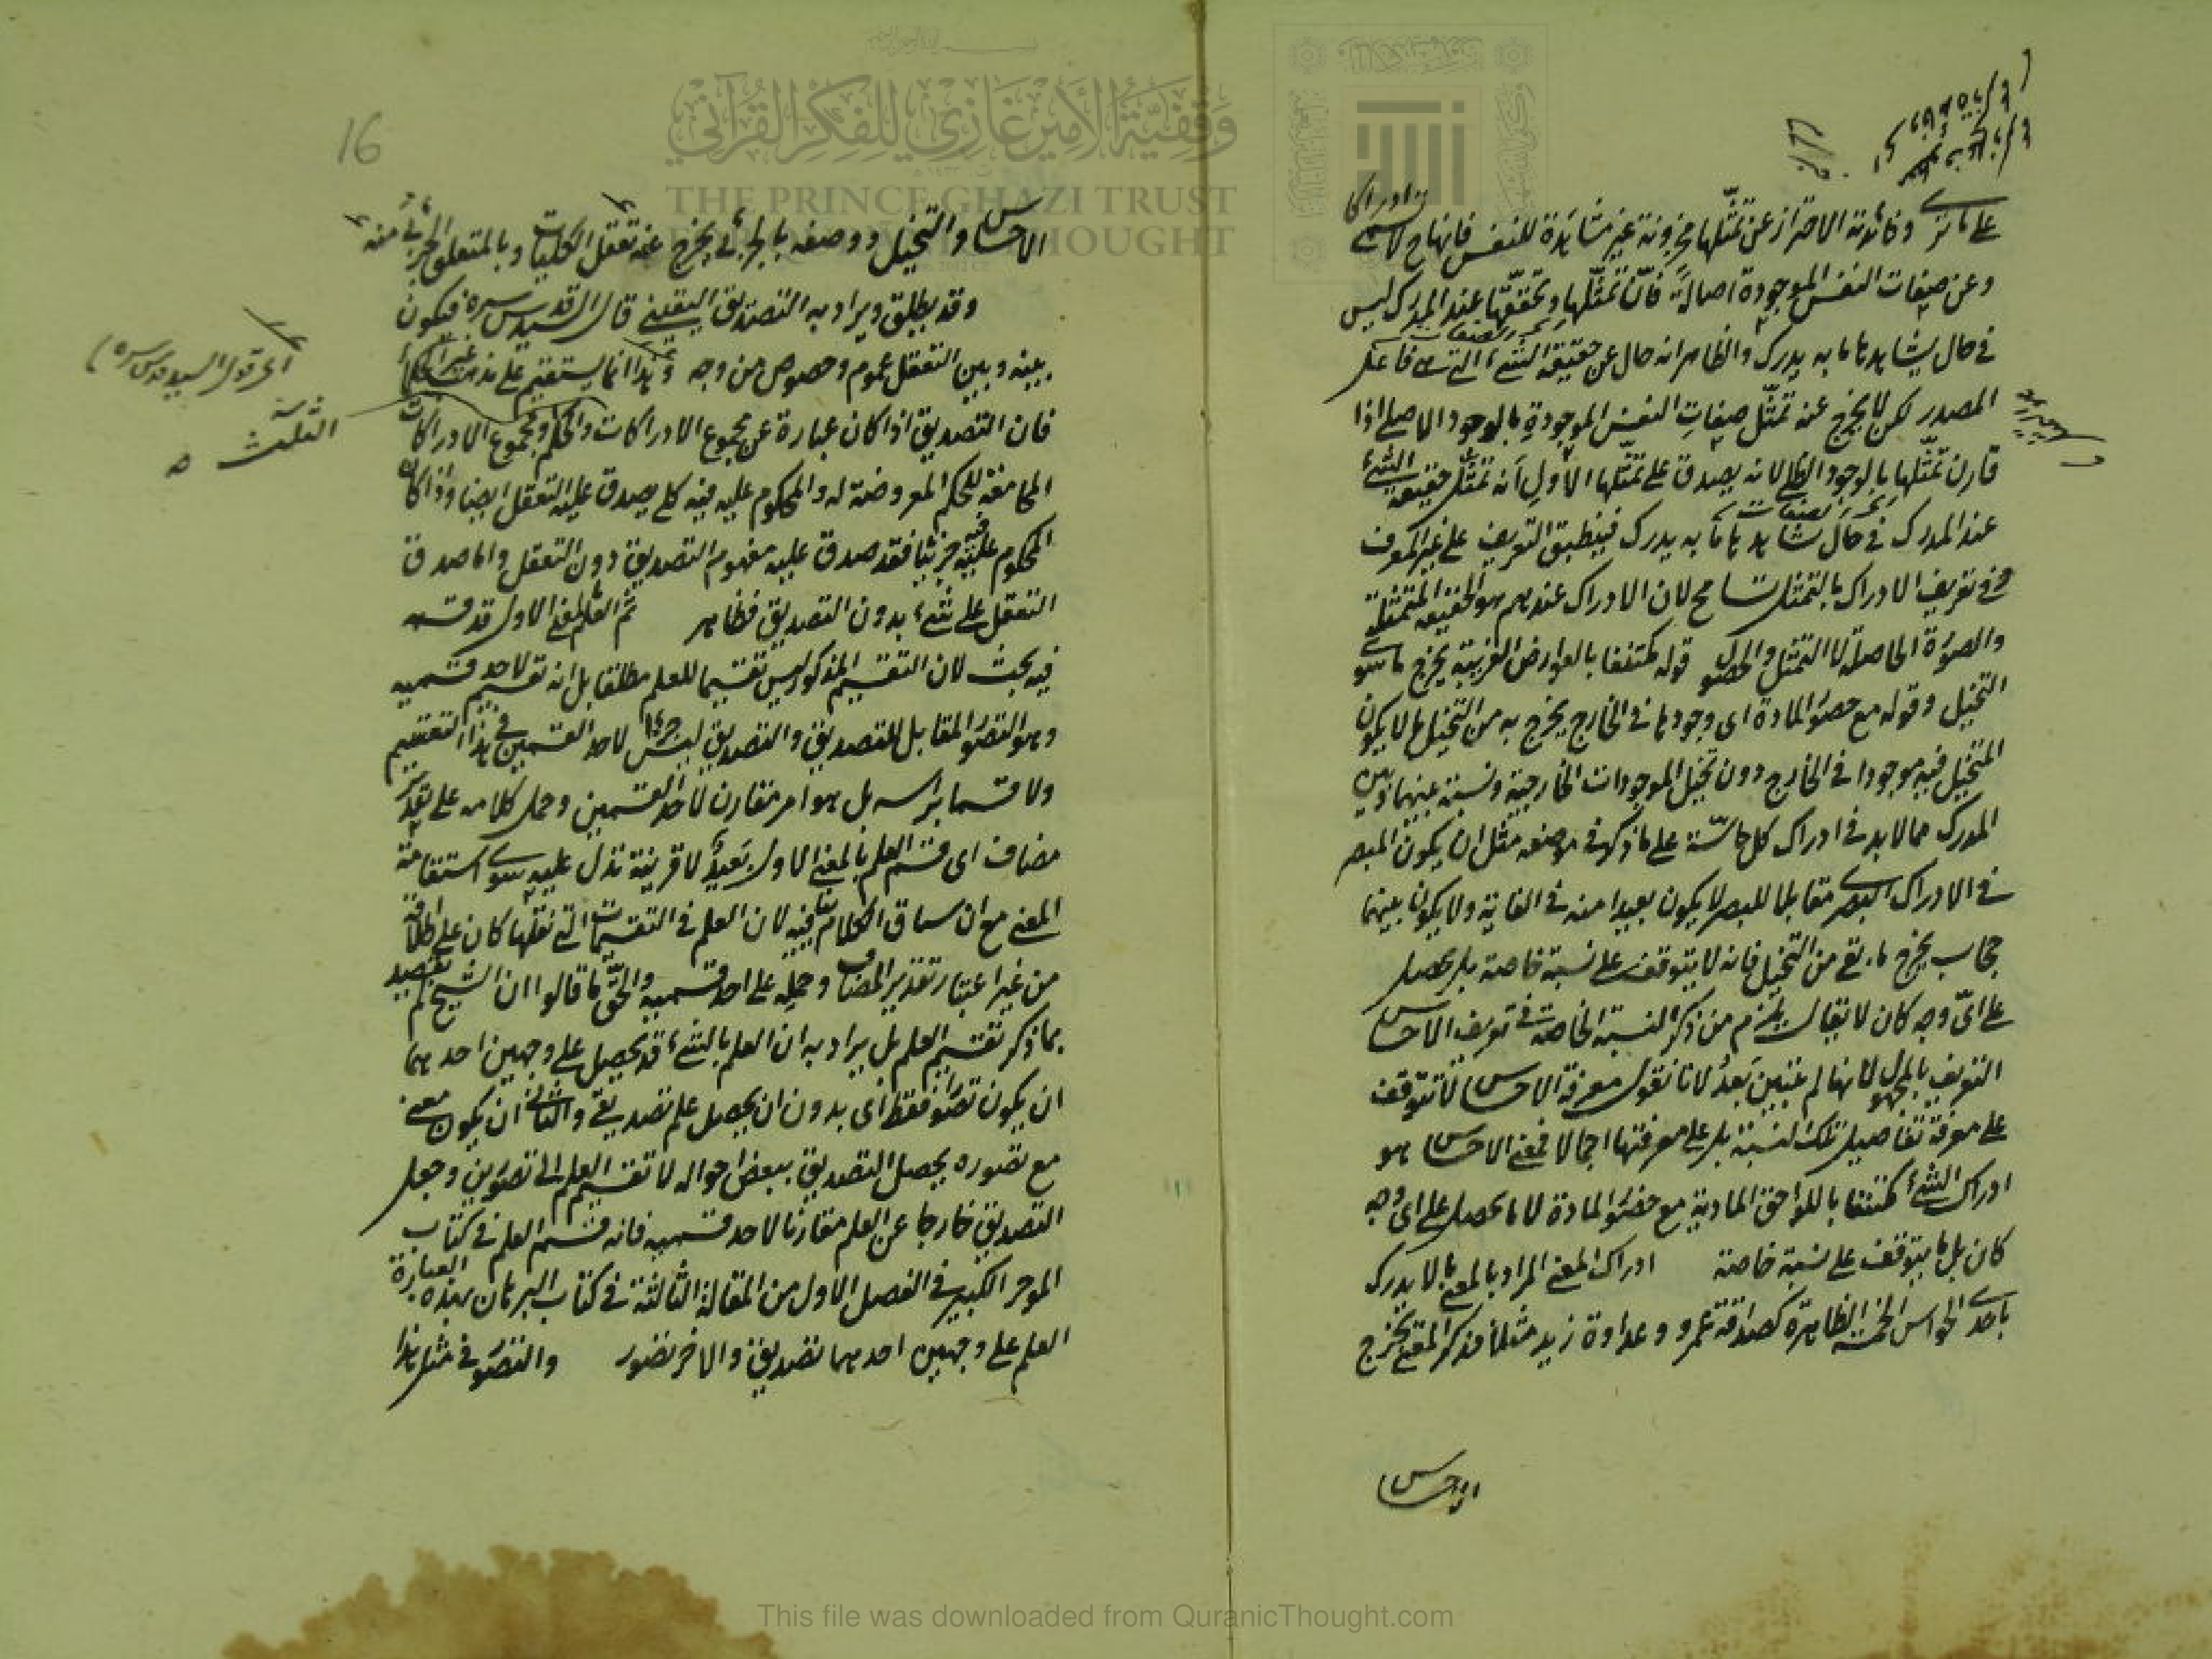 على ما ترى وفائدته الاحتراز عن تمثلها مخزونة غير مشاهدة للنفس فانها ح لا تسمى ادراكا
وعن صفات النفس الموجودة اصالة فان تمثلها وتحققها عند المدرك ليس
في حال يشاهدها ما به يدرك والظاهر انه حال عن حقيقة الشئ التي هي فاعل
المصدر لكن لا يخرج عنه تمثل صفات النفس الموجودة بالوجود الاصلي اذا
قارن تمثلها بالوجود الظلي لانه يصدق على تمثلها الاول انه تمثل حقيقة الشئ
عند المدرك في حال يشاهدها ما به يدرك فينطبق التعريف على غير المعرف
وفي تعريف الادراك بالتمثل تسامح لان الادراك عندهم هو الحقيقة المتمثلة
والصورة الحاصلة لا التمثل والحصول قوله مكتنفا بالعوارض الغريبة يخرج ما سوى
التخيل وقوله مع حضور المادة اى وجودها في الخارج يخرج به من التخيل ما لا يكون
المتخيل فيه موجودا في الخارج دون تخيل الموجودات الخارجية ونسبة بينها وبين
المدرك مما لابد في ادراك كل حاسة على ما ذكر في موضعه مثل ان يكون المبصر
في الادراك البصرى مقابلا للبصر لا يكون بعيدا منه في الغاية ولا يكون بينهما
حجاب يخرج ما بقي من التخيل فانه لا يتوقف على نسبة خاصة بل يحصل
على اىّ وجه كان لا يقال يلزم من ذكر النسبة الخاصة في تعريف الاحساس
التعريف بالمجهول لانها لم تتبين بعد لانا نقول معرفة الاحساس لا تتوقف
على معرفة تفاصيل تلك النسبة بل على معرفتها اجمالا فمعنى الاحساس هو
ادراك الشئ مكتنفا باللواحق المادية مع حضور المادة لا ما يحصل على اى وجه
كان بل ما يتوقف على نسبة خاصة ادراك المعنى المراد بالمعنى ما لا يدرك
باحدى الحواس الخمسة الظاهرة كصداقة عمرو وعداوة زيد مثلا فذكر المعنى يخرج
الاحساس
16
الاحساس والتخيل ووصفه بالجزئي يخرج عنه تعقل الكليات وبالمتعلق الجزئي منه
وقد يطلق ويراد به التصديق اليقيني قال السيد قدس سره فيكون
بينه وبين التعقل عموم وخصوص من وجه وهذا انما يستقيم على مذهب غير الحكماء
فان التصديق اذا كان عبارة عن مجموع الادراكات والحكم ومجموع الادراكات
المجامعة للحكم المعروضة له والمحكوم عليه فيه كلي يصدق عليه التعقل ايضا واذا كان
المحكوم عليه فيه جزئيا فقد صدق عليه مفهوم التصديق دون التعقل واما صدق
التعقل على شئ بدون التصديق فظاهر ثم العلم بالمعنى الاول قد قسم
فيه بحث لان التقسيم المذكور ليس تقسيما للعلم مطلقا بل انه تقسيم لاحد قسميه
وهو التصور المقابل للتصديق والتصديق ليس جزءا لاحد القسمين في هذا التقسيم
ولا قسما براسه بل هو امر مقارن لاحد القسمين وحمل كلامه على تقدير
مضاف اى قسم العلم بالمعنى الاول بعيد لا قرينة تدل عليه سوى استقامة
المعنى مع ان سياق الكلام ينافيه لان العلم في التقسيمات التي نقلها كان على اطلاقه
من غير اعتبار تقدير المضاف وحمله على احد قسميه والحق ما قالوا ان الشيخ لم يقصد
بما ذكر تقسيم العلم بل يراد به ان العلم بالشئ قد يحصل على وجهين احدهما
ان يكون تصور فقط اى بدون ان يحصل علم تصديقي والثاني ان يكون معنى
مع تصوره يحصل التصديق ببعض احواله لا تقسيم العلم الى تصورين وجعل
التصديق خارجا عن العلم مقارنا لاحد قسميه فانه قسم العلم في كتاب
الموجز الكبير في الفصل الاول من المقالة الثالثة في كتاب البرهان بهذه العبارة
العلم على وجهين احدهما تصديق والاخر تصور والتصور في مثل هذا
اى قول السيد قدس سره
وقفية الأمير غازي للفكر القرآني
THE PRINCE GHAZI TRUST
FOR QURANIC THOUGHT
This file was downloaded from QuranicThought.com